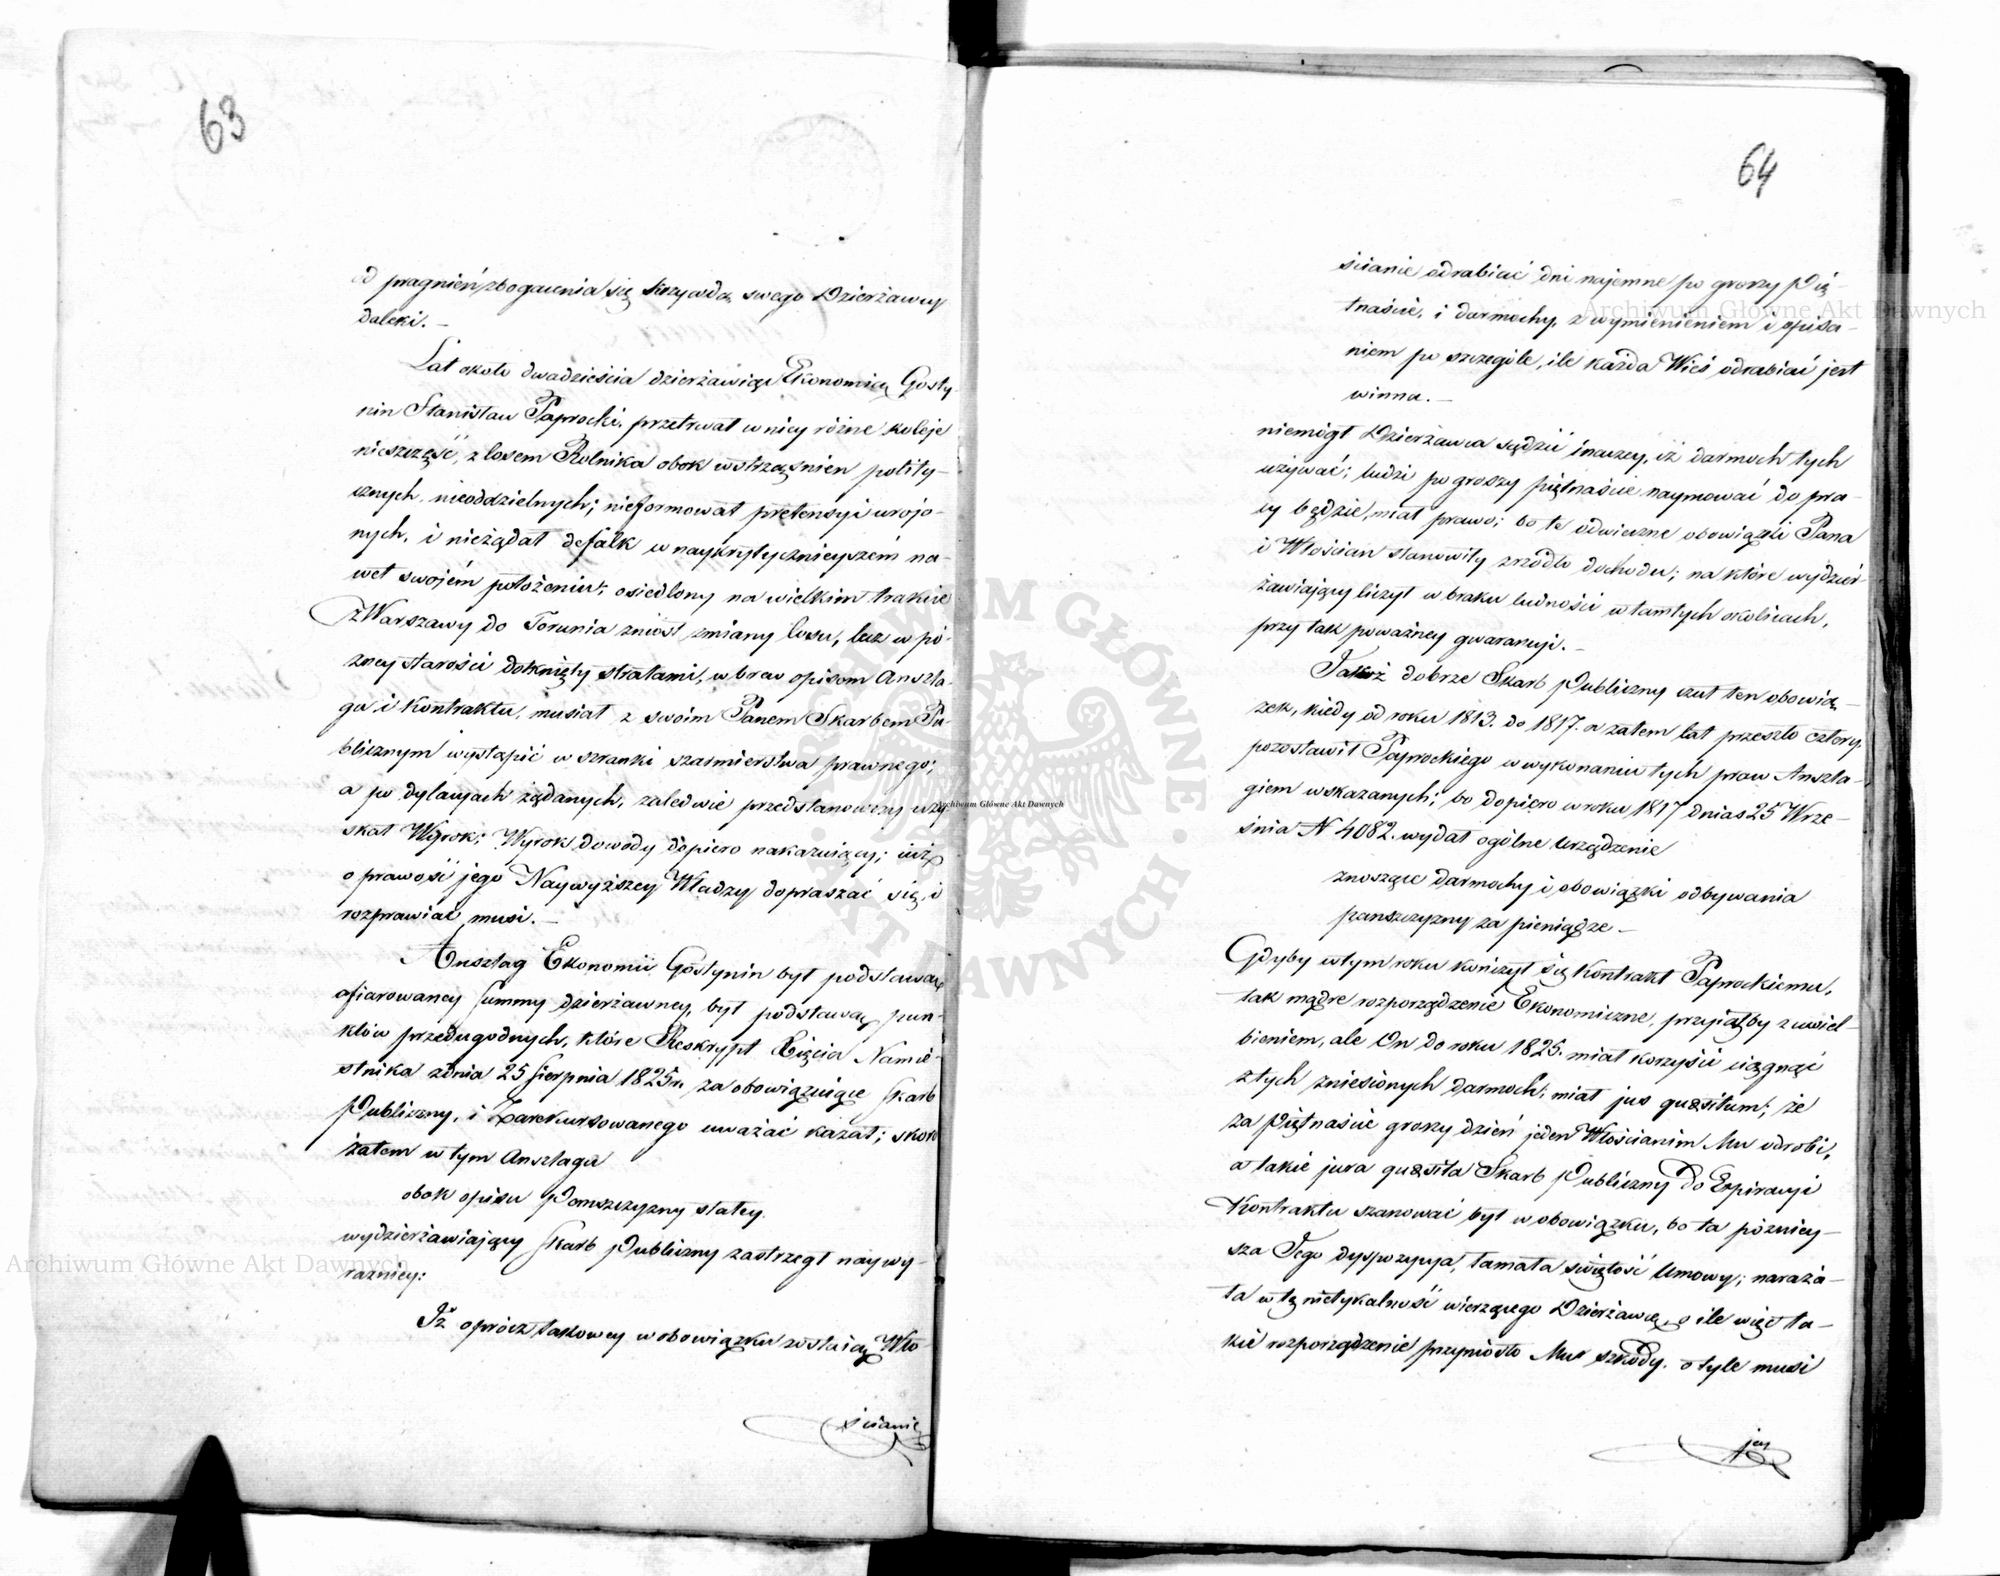 63
od pragnień zbogacenia się krzywdą swego Dzierżawcy
daleki. —
Lat około dwadzieścia dzierżawiąc Ekonomią Gosty-
nin Stanisław Paprocki, przetrwał w niey różne koleje
nieszczęść, z losem Rolnika obok wstrząśnien polity-
cznych, nieoddzielnych; nieformował pretensyi uroio-
nych, i nieżądał defalk w naykrytycznieyszem na-
wet swojém położeniu; osiedlony na wielkim trakcie
z Warszawy do Torunia zniósł zmiany losu, lecz w pó-
zney starości dotknięty stratami, wbrew opisom Anszla-
gu i Kontraktu, musiał z swoim Panem Skarbem Pu-
blicznym wystąpić w szranki szarmierstwa prawnego;
a po dylacyach żądanych, zaledwie przedstanowczy uzy-
skał Wyrok; Wyrok dowody dopiero nakazuiący; iuż
o prawość jego Naywyższey Władzy dopraszać się i
rozprawiać musi. —
Anszlag Ekonomii Gostynin był podstawą
ofiarowaney summy dzierżawney, był podstawą pun-
któw przedugodnych, które Reskrypt Xięcia Namie-
stnika zdnia 25 Sierpnia 1825 r. za obowiązuiące Skarb
Publiczny, i Zarekursowanego uważać kazał; skoro
zatem w tym Anszlagu
obok opisu Pańszczyzny stałey
wydzierżawiający Skarb Publiczny zastrzegł naywy-
razniey:
Iż oprócz takowey w obowiązku zostaią Wło-
ścianie
64
ścianie odrabiać dni najemne po groszy Pię-
tnaście, i darmochy, z wymienieniem i opisa-
niem po szczególe, ile każda Wieś odrabiać jest
winna. —
niemógł Dzierżawca sądzić inaczey, iż darmoch tych
używać; ludzi po groszy piętnaście naymować do pra-
cy będzie miał prawo; bo te odwieczne obowiązki Pana
i Włościan stanowiły zrzódło dochodu; na które wydzier-
żawiający liczył w braku ludności w tamtych okolicach,
przy tak poważney gwarancyi. —
Jakoż dobrze Skarb Publiczny czuł ten obowią-
zek, kiedy od roku 1813. do 1817. a zatem lat przeszło cztery
pozostawił Paprockiego w wykonaniu tych praw Anszla-
giem wskazanych; bo dopiero w roku 1817 dnia 25 Wrze-
śnia N 4082. wydał ogólne urządzenie
znoszące darmochy i obowiązki odbywania
panszczyzny za pieniądze —
Gdyby w tym roku kończył się Kontrakt Paprockiemu,
tak mądre rozporządzenie Ekonomiczne, przyjąłby z uwiel-
bieniem, ale On do roku 1825. miał korzyści ciągnąć
z tych zniesionych darmoch; miał jus quæsitum; że
za piętnaście groszy dzień jeden Włościanin Mu odrobi,
a takie jura quæsita Skarb Publiczny do Expiracyi
Kontraktu szanować był w obowiązku, bo ta poźniey-
sza Jego dyspozycya, łamała świętość Umowy; naraża-
ła w tę nietykalność wierzącego Dzierżawcę, o ile więc ta-
kie rozporządzenie przyniosło Mu szkody, o tyle musi
jey
Archiwum Główne Akt Dawnych
Archiwum Główne Akt Dawnych
Archiwum Główne Akt Dawnych
ARCHIWUM GŁÓWNE AKT DAWNYCH